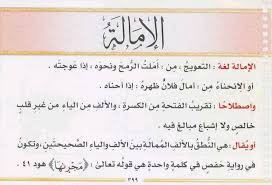 الإمالة
الإمالة لغة : التعويج ، من : أملت الرمح ونحوه ، إذا عوجته
أو الانحناء من : أمال فلان ظهره : إذا أحناه .
واصطلاحًا : تقريب الفتحة من الكسرة ، والألف من الياء من غير قلب
خالص ولا إشباع مبالغ فيه .
أو يُقال : هي النطق بالألف الممالة بين الألف والياء الصحيحتين ، وتكون
في رواية حفص في كلمة واحدة هي قوله تعالى : ﴿مَجْر۪ىٰهَا﴾ هود ٤١ .
٣٩٩